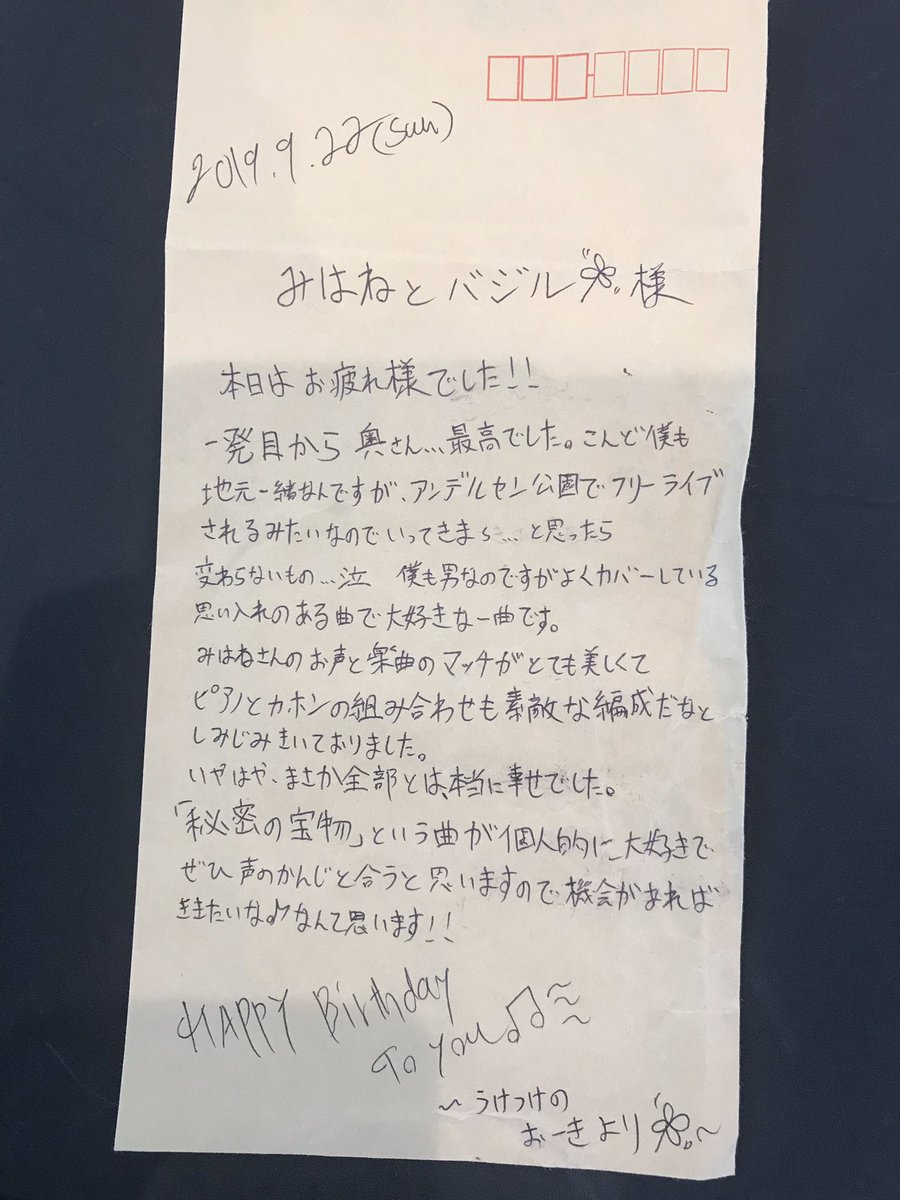 2019.9.22(sun)
みはねとバジル 様
本日はお疲れ様でした!!
一発目から 奥さん…最高でした。こんど僕も
地元一緒なんですが、アンデルセン公園でフリーライブ
されるみたいなのでいってきま〜…と思ったら
変わらないもの…泣 僕も男なのですがよくカバーしている
思い入れのある曲で大好きな一曲です。
みはねさんのお声と楽曲のマッチがとても美しくて
ピアノとカホンの組み合わせも素敵な編成だなと
しみじみきいておりました。
いやはや、まさか全部とは、本当に幸せでした。
「秘密の宝物」という曲が個人的に大好きで
ぜひ声のかんじと合うと思いますので機会があれば
ききたいな♪なんて思います!!
HAPPY Birthday
To you♫♫〜
〜うけつけの
おーきより 〜